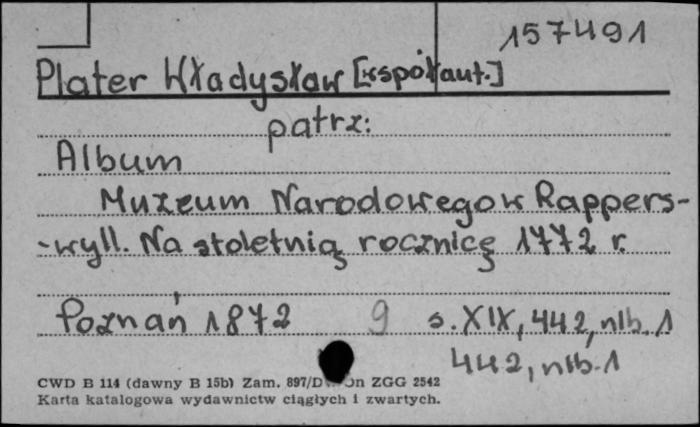 157491
Plater Władysław [współaut.]
patrz:
Album
Muzeum Narodowego w Rappers-
-wyll. Na stoletnią rocznicę 1772 r.
Poznań 1872 9 s. XIX, 442, nlb. 1
442, nlb. 1
CWD B 114 (dawny B 15b) Zam. 897/D ZGG 2542
Karta katalogowa wydawnictw ciągłych i zwartych.